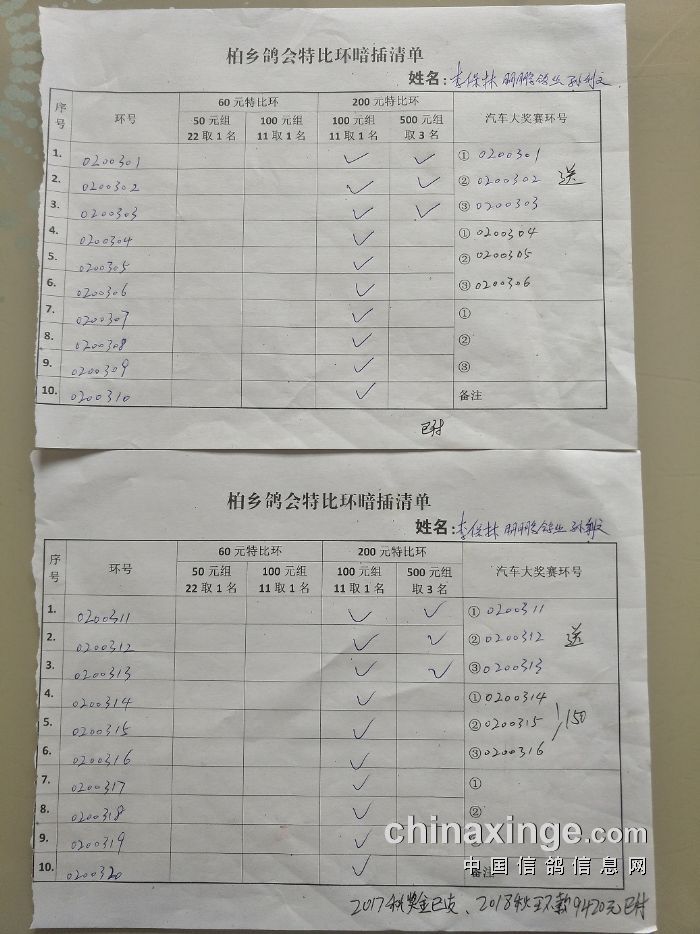 柏乡鸽会特比环暗插清单
姓名: 李保林 朋鹏鸽业 孙利文
序号 环号 60元特比环 200元特比环 汽车大奖赛环号
50元组 22取1名 100元组 11取1名 100元组 11取1名 500元组 取3名
1. 0200301 ✓ ✓ ① 0200301
2. 0200302 ✓ ✓ ② 0200302 送
3. 0200303 ✓ ✓ ③ 0200303
4. 0200304 ✓ ① 0200304
5. 0200305 ✓ ② 0200305
6. 0200306 ✓ ③ 0200306
7. 0200307 ✓ ①
8. 0200308 ✓ ②
9. 0200309 ✓ ③
10. 0200310 ✓ 备注
已付
柏乡鸽会特比环暗插清单
姓名: 李保林 朋鹏鸽业 孙利文
序号 环号 60元特比环 200元特比环 汽车大奖赛环号
50元组 22取1名 100元组 11取1名 100元组 11取1名 500元组 取3名
1. 0200311 ✓ ✓ ① 0200311
2. 0200312 ✓ ✓ ② 0200312 送
3. 0200313 ✓ ✓ ③ 0200313
4. 0200314 ✓ ① 0200314
5. 0200315 ✓ ② 0200315 150
6. 0200316 ✓ ③ 0200316
7. 0200317 ✓ ①
8. 0200318 ✓ ②
9. 0200319 ✓
10. 0200320 ✓ 备注
chinaxinge.com
中国信鸽信息网
2017秋奖金已支、2018秋环款9420元已付